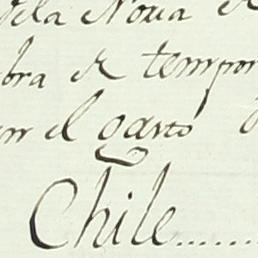 dela Nova
bra de tempor
en el gasto
Chile........